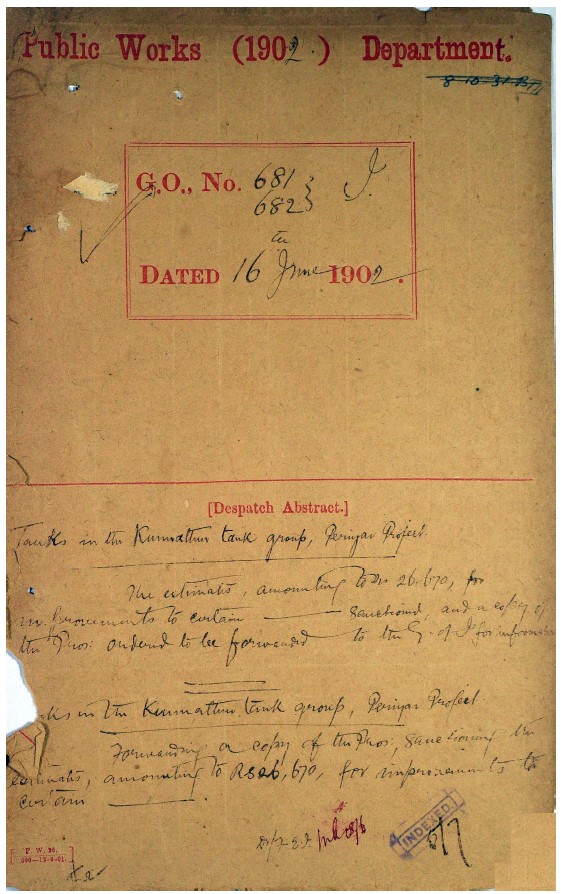 Public Works (1902.) Department.
8 10 31 B III
G.O., No. 681 } I.
682 }
DATED 16 June 1902.
[Despatch Abstract.]
Tanks in the Kunnathur tank group, Periyar Project.
The estimates, amounting to Rs 26,670, for
improvements to certain ——— sanctioned, and a copy of
the Pros: ordered to be forwarded to the G. of I for information
ks in the Kunnathur tank group, Periyar Project.
Forwarding a copy of the Pros:, sanctioning the
estimates, amounting to Rs 26,670, for improvements to
certain ———.
INDEXED.
6/7
P. W. 30.